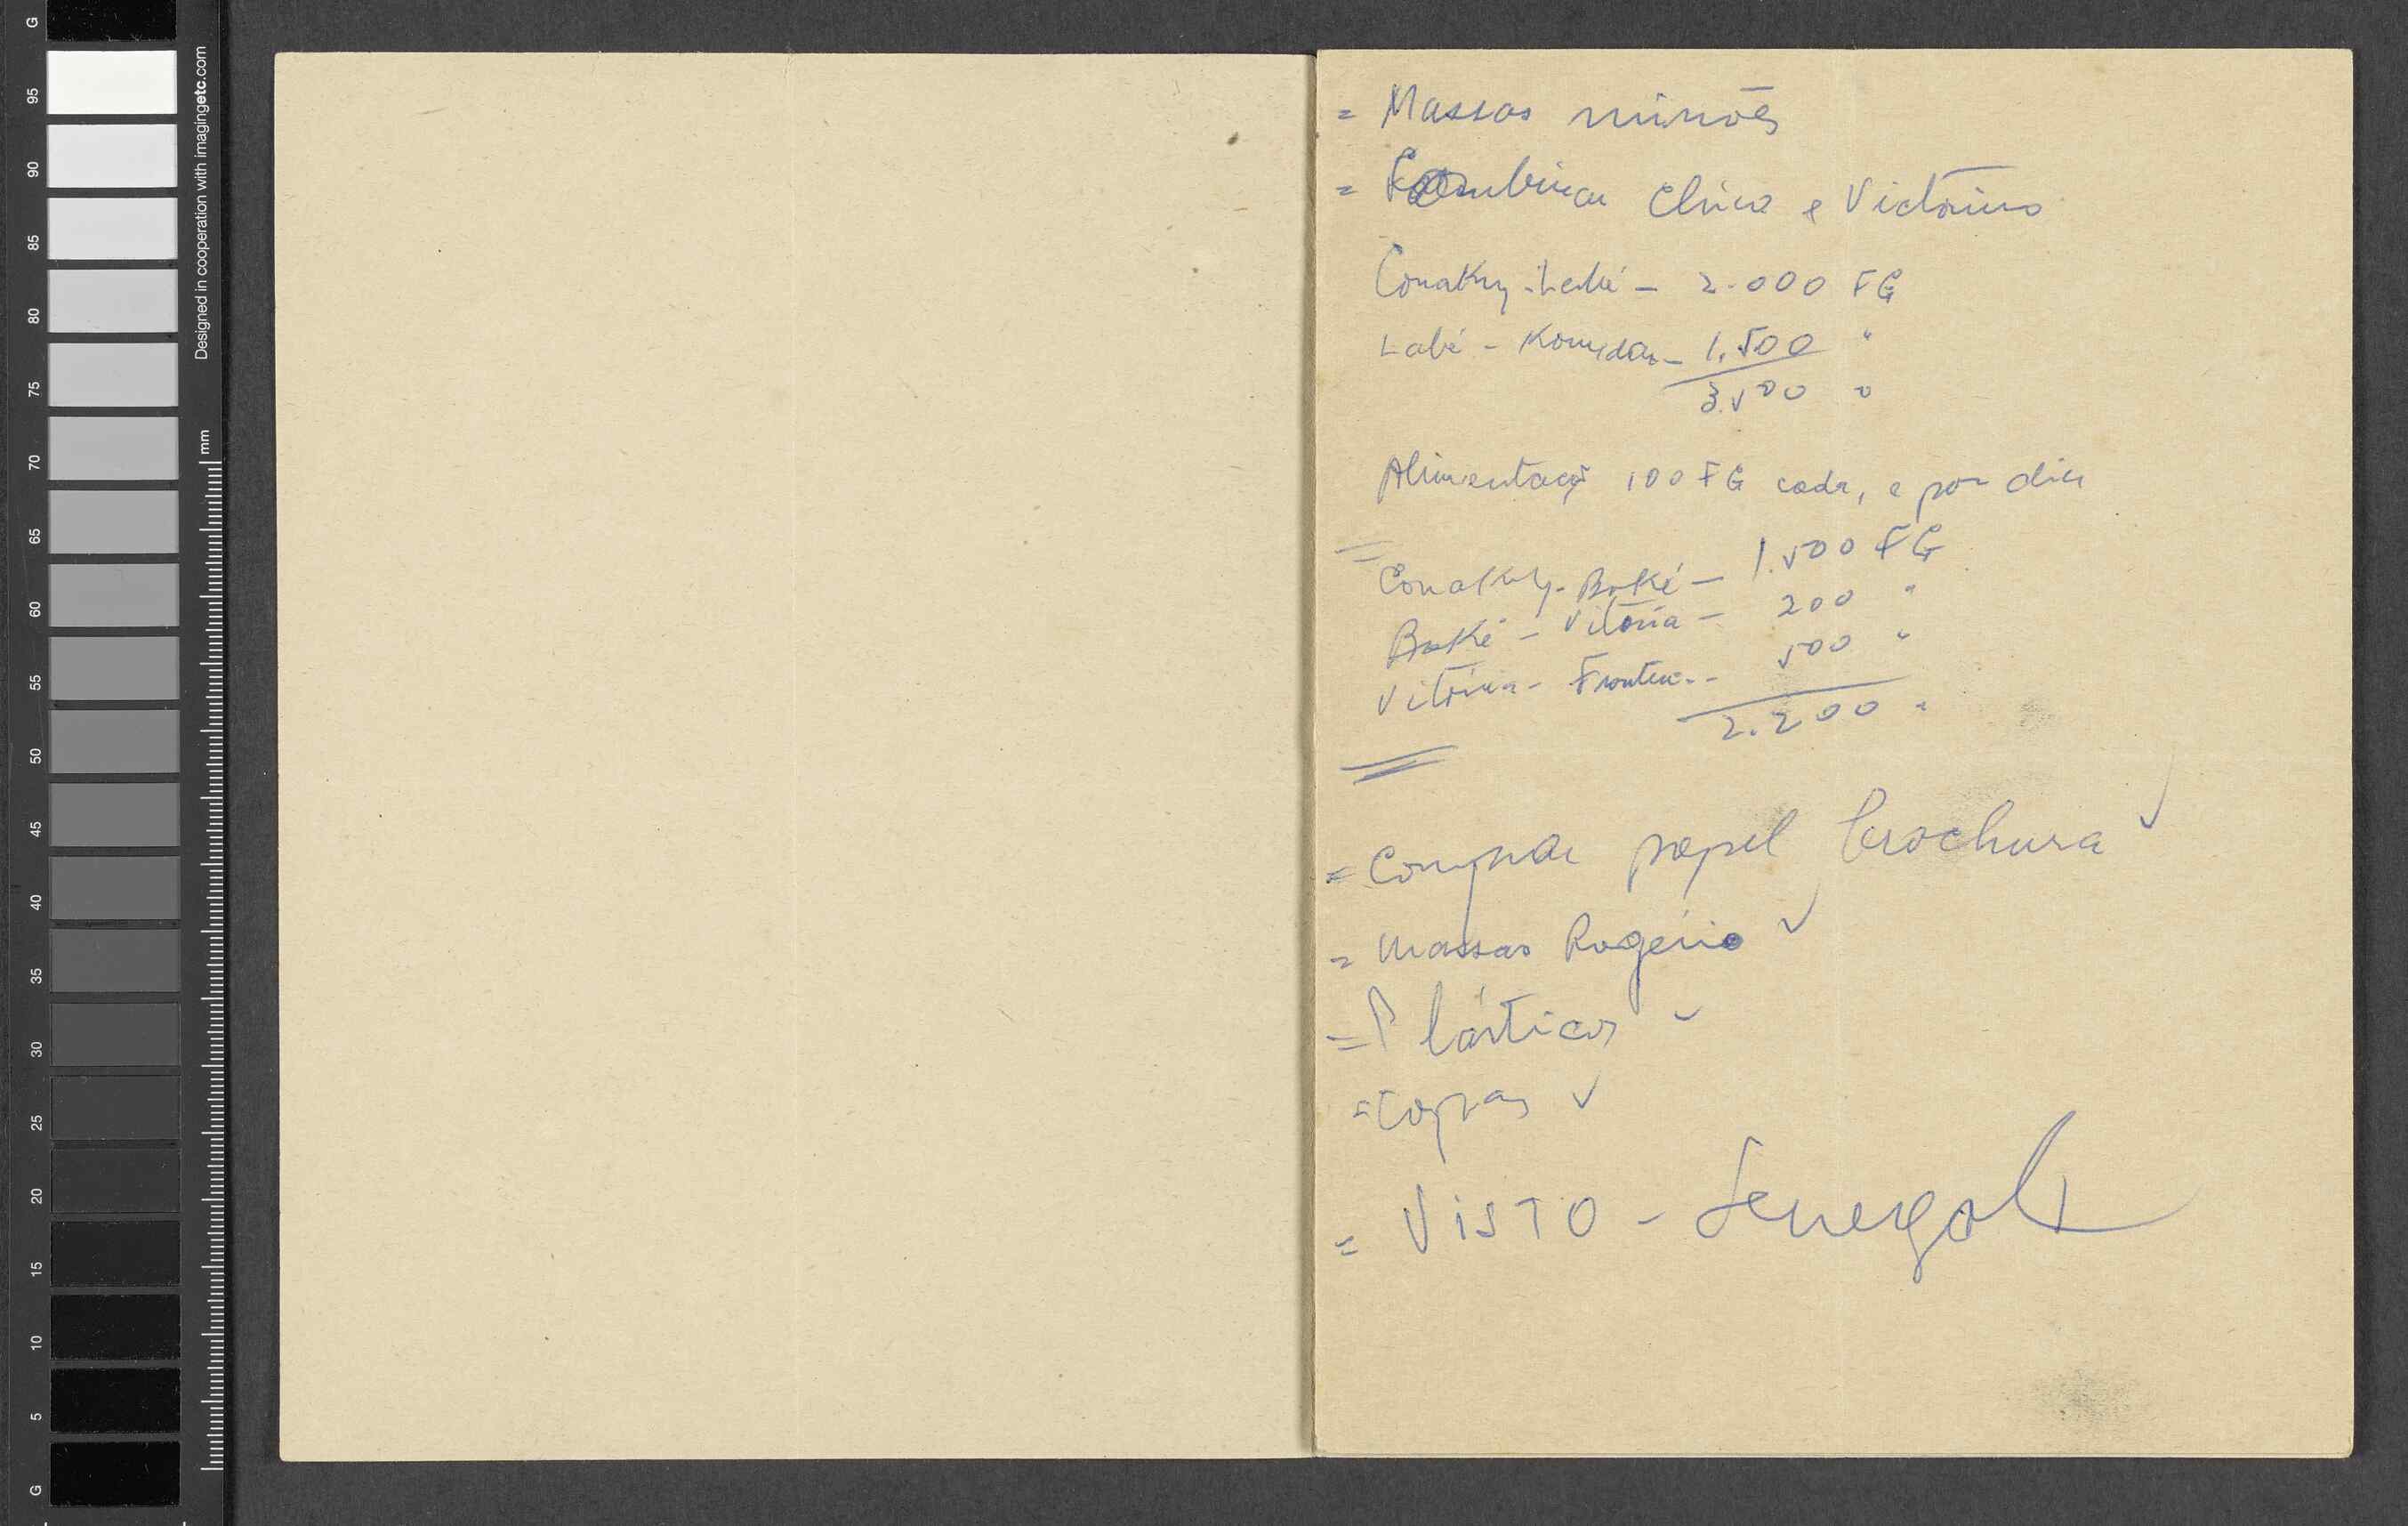 = Massas missões
= Combinar Chico e Victorino
Conakry-Labé — 2.000 FG
Labé - Koundara — 1.500 "
3.500 "
Alimentação 100 FG cada, e por dia
= Conakry-Boké — 1.500 FG
Boké — Vitória — 200 "
Vitória - Fronteira - 500 "
2.200 "
= Comprar papel brochura ✓
= Massas Rogério ✓
= Plásticos ✓
= Capas ✓
= VISTO - Senegal
G
95
90
85
80
75
70
65
60
55
50
45
40
35
30
25
20
15
10
5
G
Designed in cooperation with imagingetc.com
mm